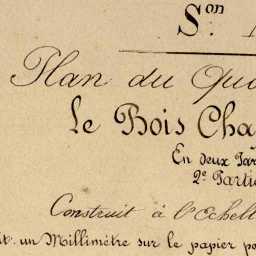 Son
Plan du Qua
Le Bois Cha
En deux Par
2e Partie
Construit à l'Echell
it. un Millimètre sur le papier po